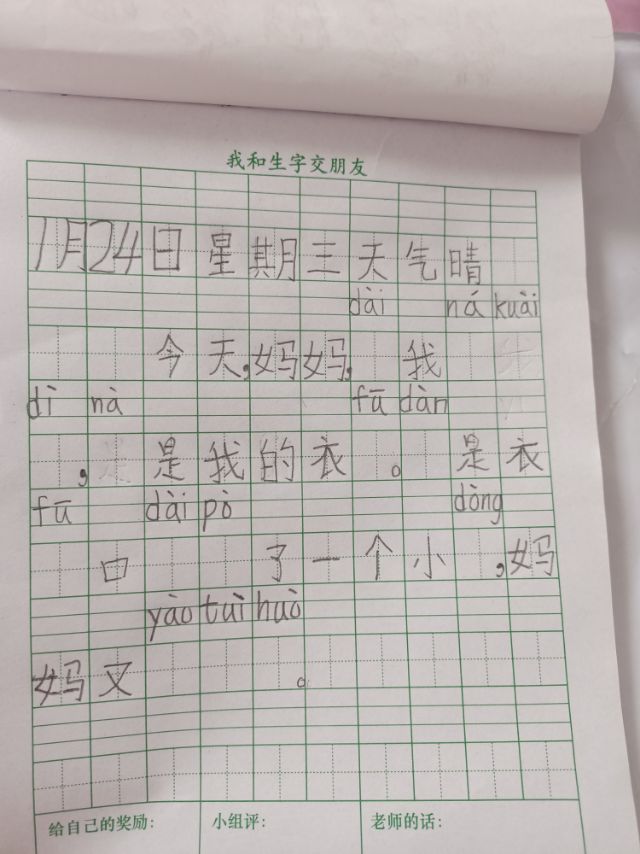 我和生字交朋友
1月24日星期三天气晴
dài ná kuài
今天,妈妈, 我
dì nà fū dàn
, 是我的衣 。 是衣
fū dài pò dòng
口 了一个小 ,妈
yào tuì huò
妈又 。
给自己的奖励: 小组评: 老师的话: